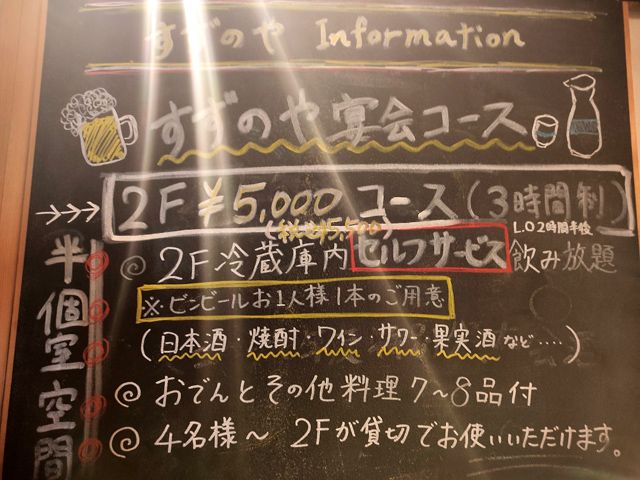 すずのや Information
すずのや宴会コース
2F ¥5,000 コース (3時間制)
(税込¥5,500)
L.O 2時間半後
半個室空間
◎ 2F冷蔵庫内 セルフサービス 飲み放題
※ビンビールお1人様1本のご用意
(日本酒・焼酎・ワイン・サワー・果実酒など‥‥)
◎ おでんとその他料理7〜8品付
◎ 4名様〜 2Fが貸切でお使いいただけます。